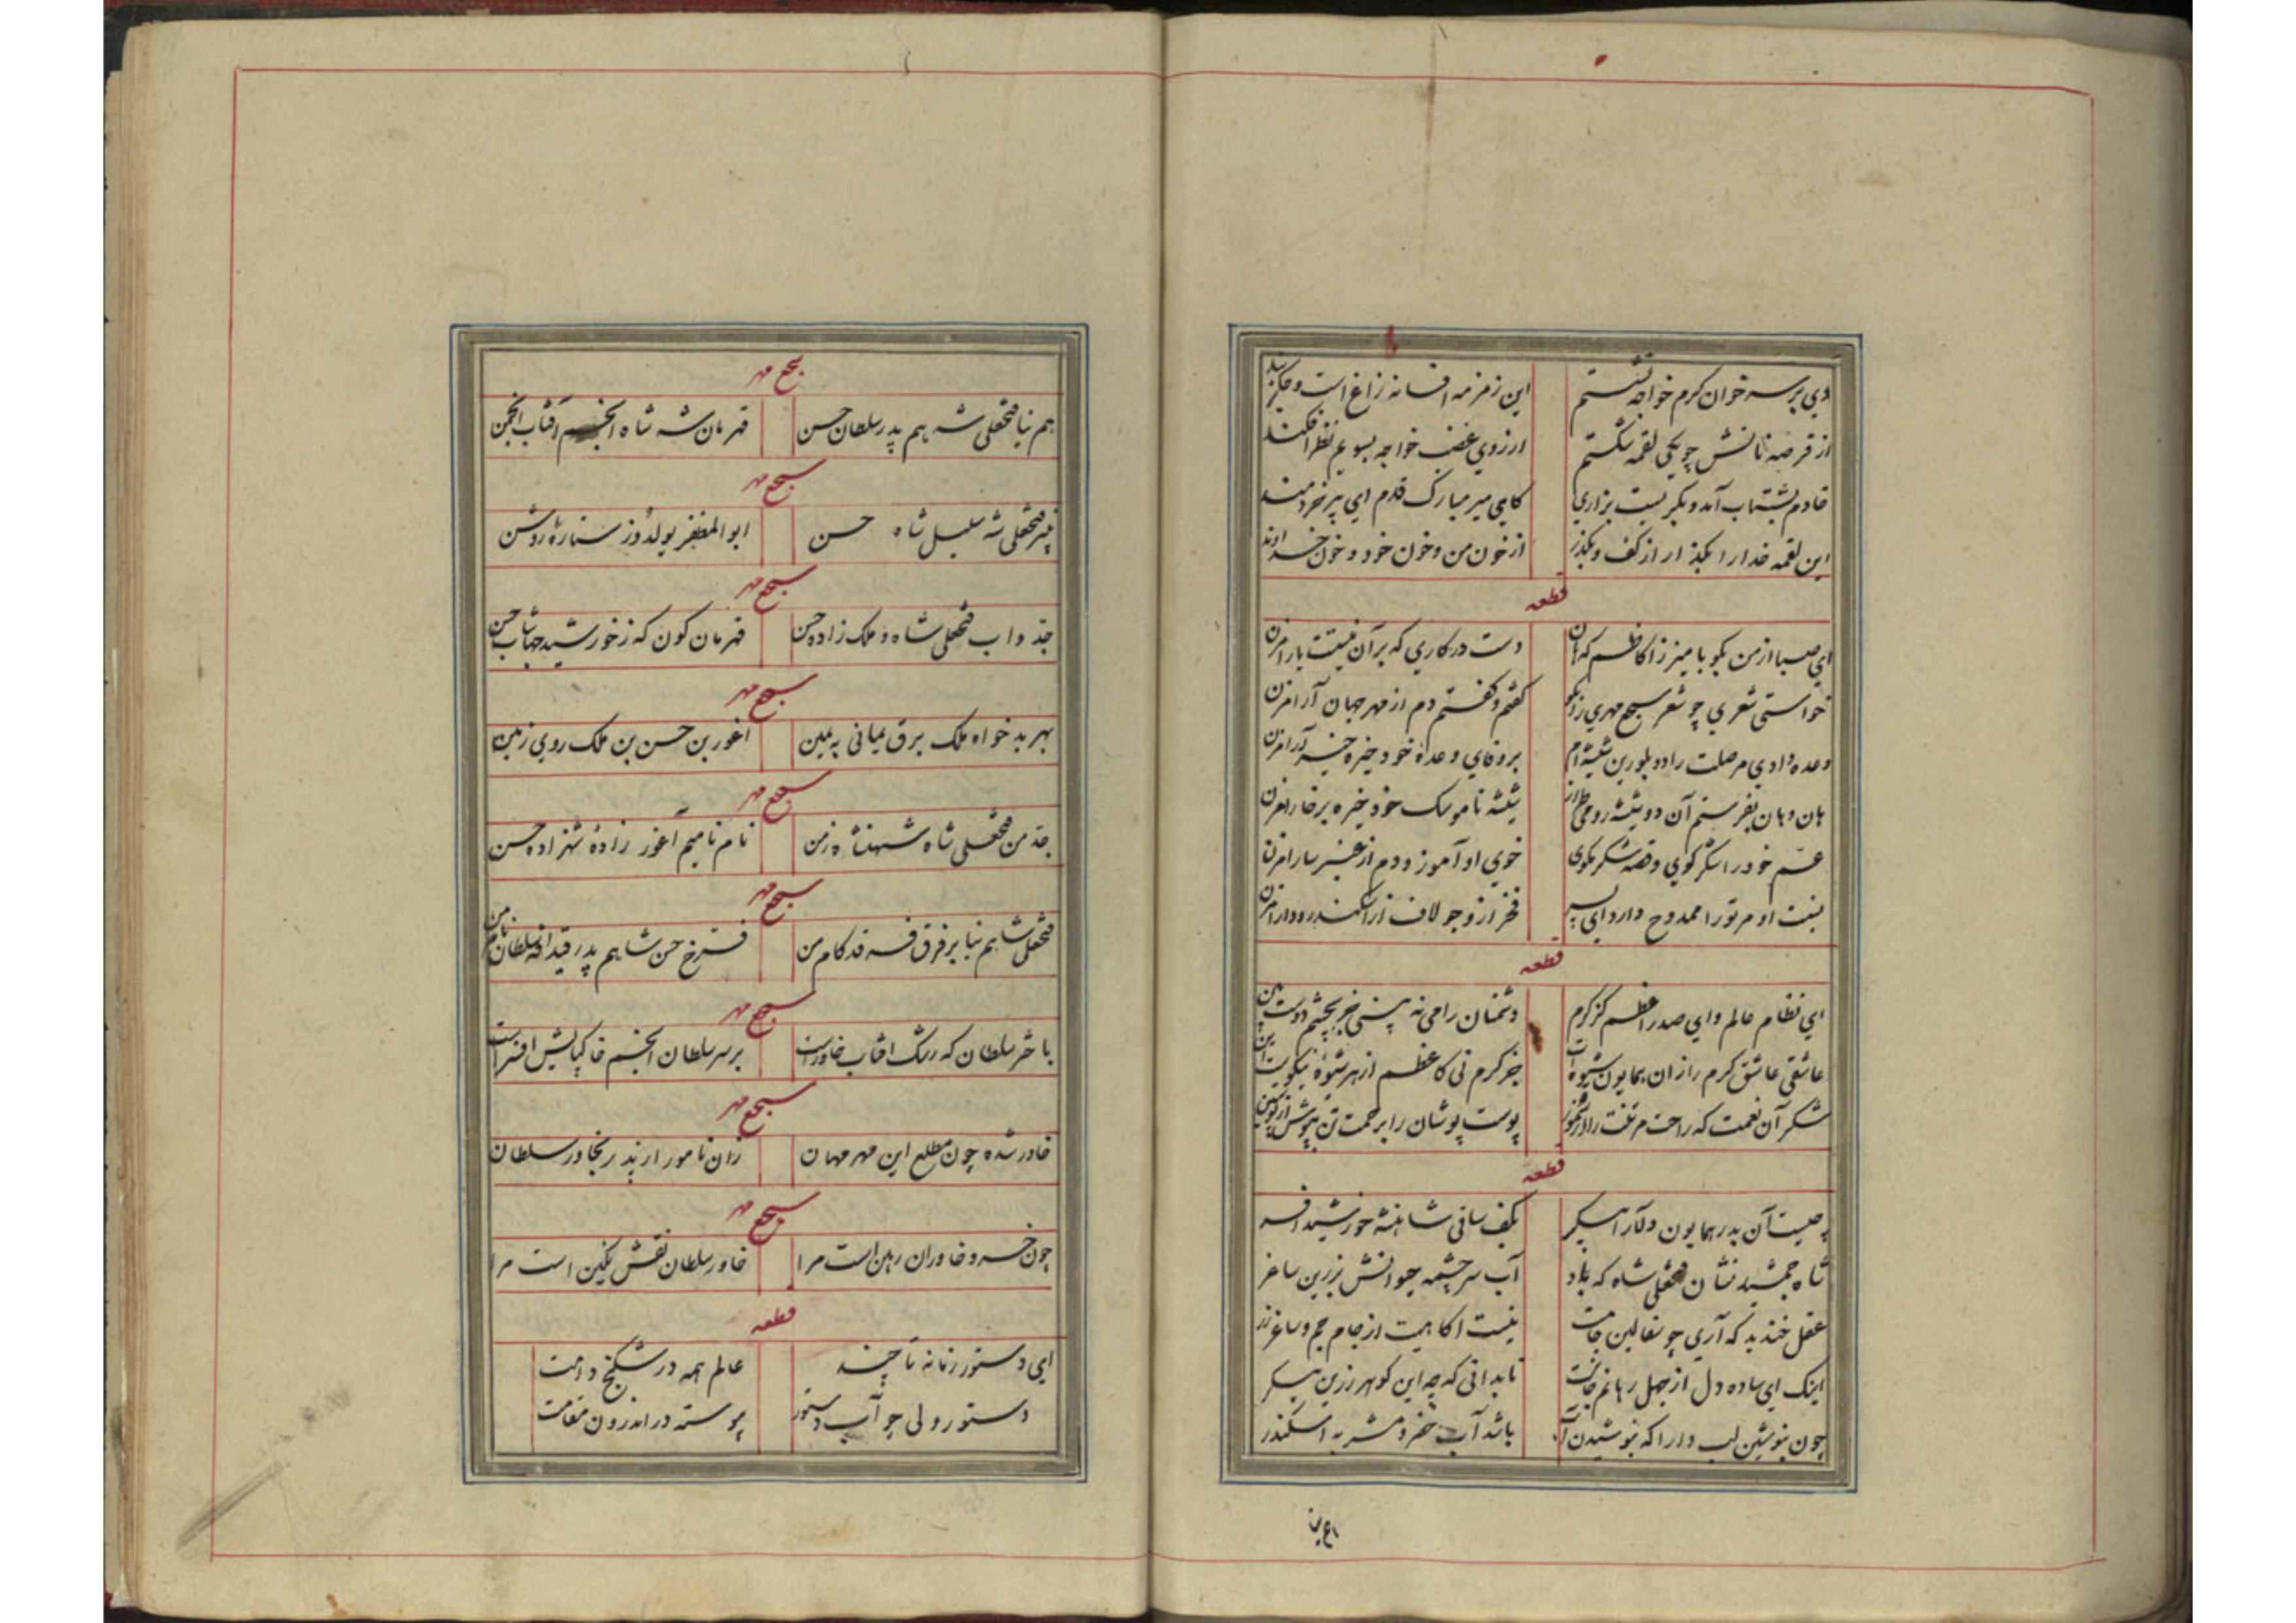 دی بر سر خوان کرم خواجه نشستم این زمزمه افسانه زاغ است و
از قرصه نانش چو یکی لقمه شکستم از روی غضب خواجه بسویم نظر افکند
خادم بشتاب آمد و بگریست بزاری کای میر مبارک قدم ای پیر خردمند
این لقمه خدا را بگذار از کف و بگذر از خون من و خون خود و خون خداوند
قطعه
ای صبا از من بگو با میرزا کاظم که هان دست در کاری که بر آن نیستت یارا مزن
خواستی شعری چو شعر سجع مهری زانکو گفتم و گفتم دم از مهر جهان آرا مزن
وعده دادی مر صلت را دو بلورین شیشه‌ام بر وفای وعدهٔ خود خیره خیره مزن
هان و هان بفرستم آن دو شیشه رومی طراز شیشه ناموسک خود خیره بر خارا مزن
عم خود را شکر گوی و قصه شکر مگوی خوی او آموز و دم از عنبر سارا مزن
بنت او مر تو را ممدوح دارد ای پسر فخر از و جو لاف از اسکندر و دارا مزن
قطعه
ای نظام عالم و ای صدر اعظم کز کرم دشمنان را می نه بینی جز بچشم دوست بین
عاشقی عاشق کرم را زان همایون شیوه‌ات جز کرم نی کاعظم از هر شیوهٔ نیکوست این
شکر آن نعمت که راحت مر تنت را پوست پوشان را برحمت تن بپوش از پوستین
قطعه
چیست آن بدر همایون دلآرا پیکر بکف ساقی شاهنشه خورشید افسر
شاه جمشید نشان فتحعلی شاه که باد آب سرچشمه حیوانش بزرین ساغر
عقل خندید که آری چو سفالین جامت نیست آگاهیت از جام جم و ساغر زر
اینک ای ساده دل از جهل رهانم جانت تا بدانی که چه این گوهر زرین پیکر
چون بنوشین لب دارا که بنوشیدن آب باشد آب خضر و مشربه اسکندر
سجع مهر
هم نیا فتحعلی شه هم پدر سلطان حسن قهرمان شه شاه انجم آفتاب انجمن
سجع مهر
نبیر فتحعلی شه سلیل شاه حسن ابوالمظفر یولدوز ستارهٔ روشن
سجع مهر
جد و اب فتحعلی شاه و ملک زاده حسن قهرمان کون که ز خورشید جهانتاب حسن
سجع مهر
بهر بدخواه ملک برق یمانی به یمین اغور بن حسن بن ملک روی زمین
سجع مهر
جد من فتحعلی شاه شهنشاه زمن نام نامیم آغور زادهٔ شهزاده حسن
سجع مهر
فتحعلی شاهم نیا بر فرق فرقد کام من فرخ حسن شاهم پدر قیدافه سلطان نام من
سجع مهر
باختر سلطان که رشک افتاب خاورست بر سر سلطان انجم خاک پایش افسر است
سجع مهر
خاور شده چون مطلع این مهر مهان زان نامور از پدر بخاور سلطان
سجع مهر
چون خسرو خاوران رهین است مرا خاور سلطان نقش نگین است مرا
قطعه
ای دستور زمانه تا چند عالم همه در شکنج دامت
دستور ولی چو آب دستور پیوسته در اندرون مقامت